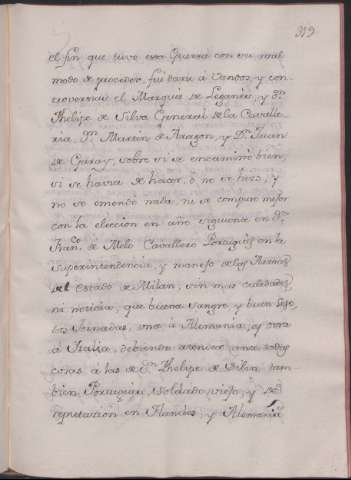 319
el fin que tuvo esta Guerra con su mal
modo de proceder, fuè dar à vandos, y con
el Marquès de Leganès, y Dn.
Phelipe de Silva General de la Cavalle
ria, Dn. Martin de Aragon, y Dn. Juan
de Garay, sobre si se encaminò bien,
si se havia de hacer, ò no se hizo, y
no se emendò nada, ni se compuso mejor
con la eleccion en año siguiente en Dn.
Franco. de Melo Cavallero Portuguès con la
Superintendencia, y manejo de las Armas
del Estado de Milàn, sin mas calidades,
ni noticia, que buena sangre y buen seso,
dos Jornadas, una à Alemania, y otra
à Italia, debiendo atender
cosas à las de Dn. Phelipe de Silva, tam
bien Portuguès, Soldado viejo, y de
reputacion en Flandes, y Alemania